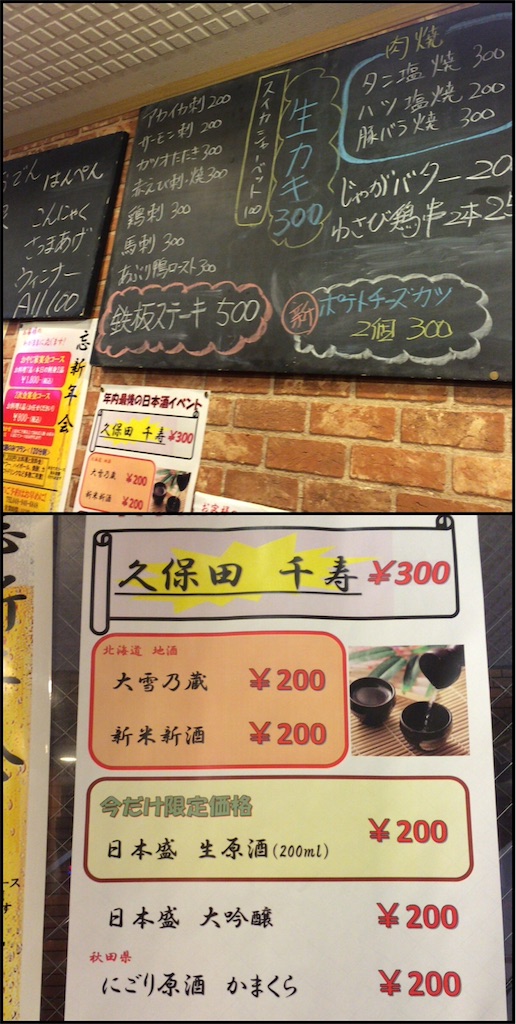 はんぺん
こんにゃく
さつまあげ
ウィンナー
All 100
アカイカ刺 200
サーモン刺 200
カツオたたき 300
赤えび刺・焼 300
鶏刺 300
馬刺 300
あぶり鴨ロースト 300
スイカシャーベット 100
生カキ 300
肉焼
タン塩焼 300
ハツ塩焼 200
豚バラ焼 300
じゃがバター 20
わさび鶏串2本 25
鉄板ステーキ 500
新 ポテトチーズカツ
2個 300
忘新年会
年内最後の日本酒イベント
久保田 千寿 ¥300
大雪乃蔵 ¥200
新米新酒 ¥200
久保田 千寿 ¥300
北海道 地酒
大雪乃蔵 ¥200
新米新酒 ¥200
今だけ限定価格
日本盛 生原酒(200ml) ¥200
日本盛 大吟醸 ¥200
秋田県
にごり原酒 かまくら ¥200